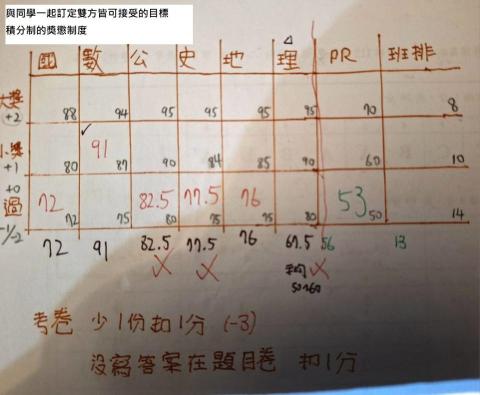 與同學一起訂定雙方皆可接受的目標
積分制的獎懲制度
國 數 公 史 地 理 PR 班排
大獎 +2 88 94 95 95 95 95 70 8
小獎 +1 80 91 87 90 84 85 90 60 10
+0 過 72 72 75 82.5 80 77.5 75 76 75 80 53 50 14
-1/-2 72 91 82.5 77.5 76 67.5 56 13
平均
50~60
考卷 少1份扣1分 (-3)
沒寫答案在題目卷 扣1分